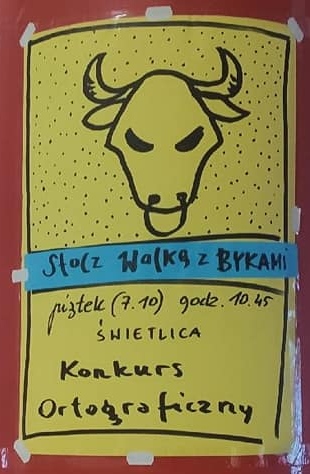 Stocz Walkę z BYKAMI
piątek (7.10) godz. 10.45
ŚWIETLICA
Konkurs
Ortograficzny